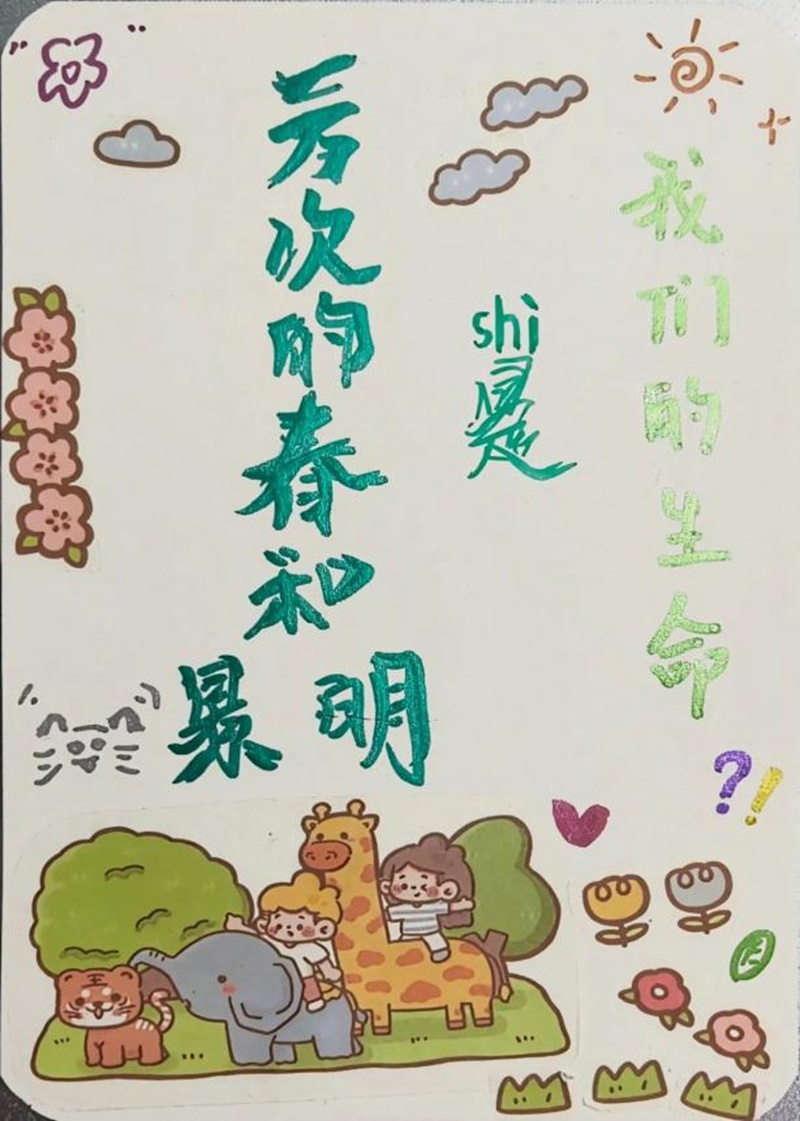 我们的生命
shi
是
万次的春和
景明
?!